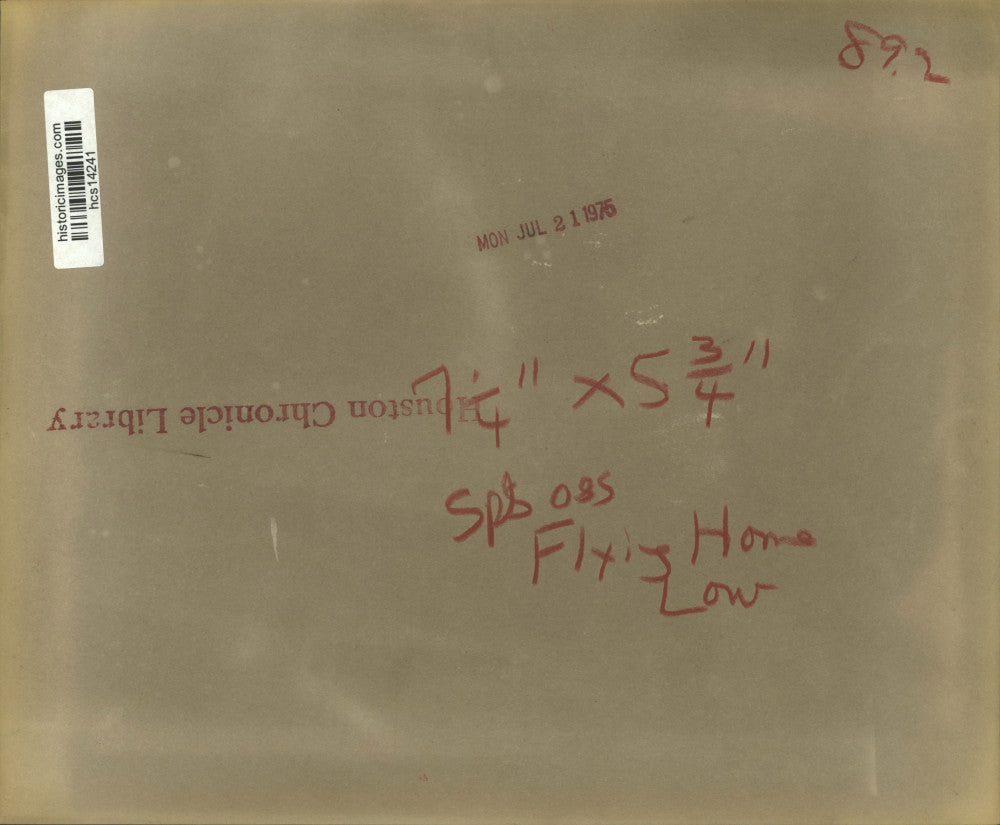 89.2
historicimages.com
hcs14241
MON JUL 21 1975
7 1/4" x 5 3/4"
Houston Chronicle Library
Spts 085
Flying Home
Low